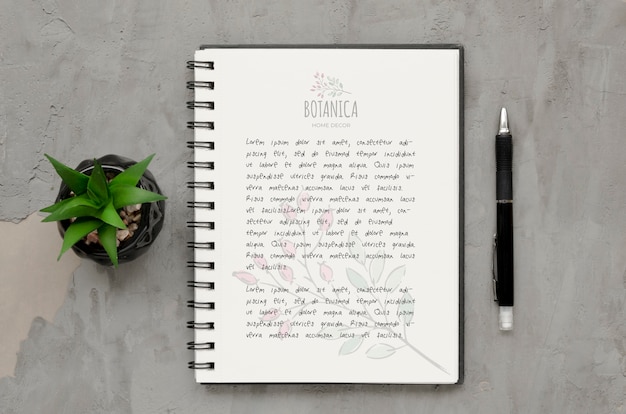 BOTANICA
HOME DECOR
Lorem ipsum dolor sit amet, consectetur ad-
ipiscing elit, sed do eiusmod tempor incididunt
ut labore et dolore magna aliqua. Quis ipsum
suspendisse ultrices gravida. Risus commodo vi-
verra maecenas accumsan lacus vel facilisis.
Risus commodo viverra maecenas accumsan lacus
vel facilisis Lorem ipsum dolor sit amet, con-
sectetur adipiscing elit, sed do eiusmod tempor
incididunt ut labore et dolore magna
aliqua. Quis ipsum suspendisse ultrices gravida.
Risus commodo viverra maecenas accumsan lacus
vel facilisis.
Lorem ipsum dolor sit amet, consectetur
adipiscing elit, sed do eiusmod tempor incididunt
ut labore et dolore magna aliqua. Quis ipsum
suspendisse ultrices gravida. Risus commodo
viverra maecenas accumsan lacus vel facilisis.